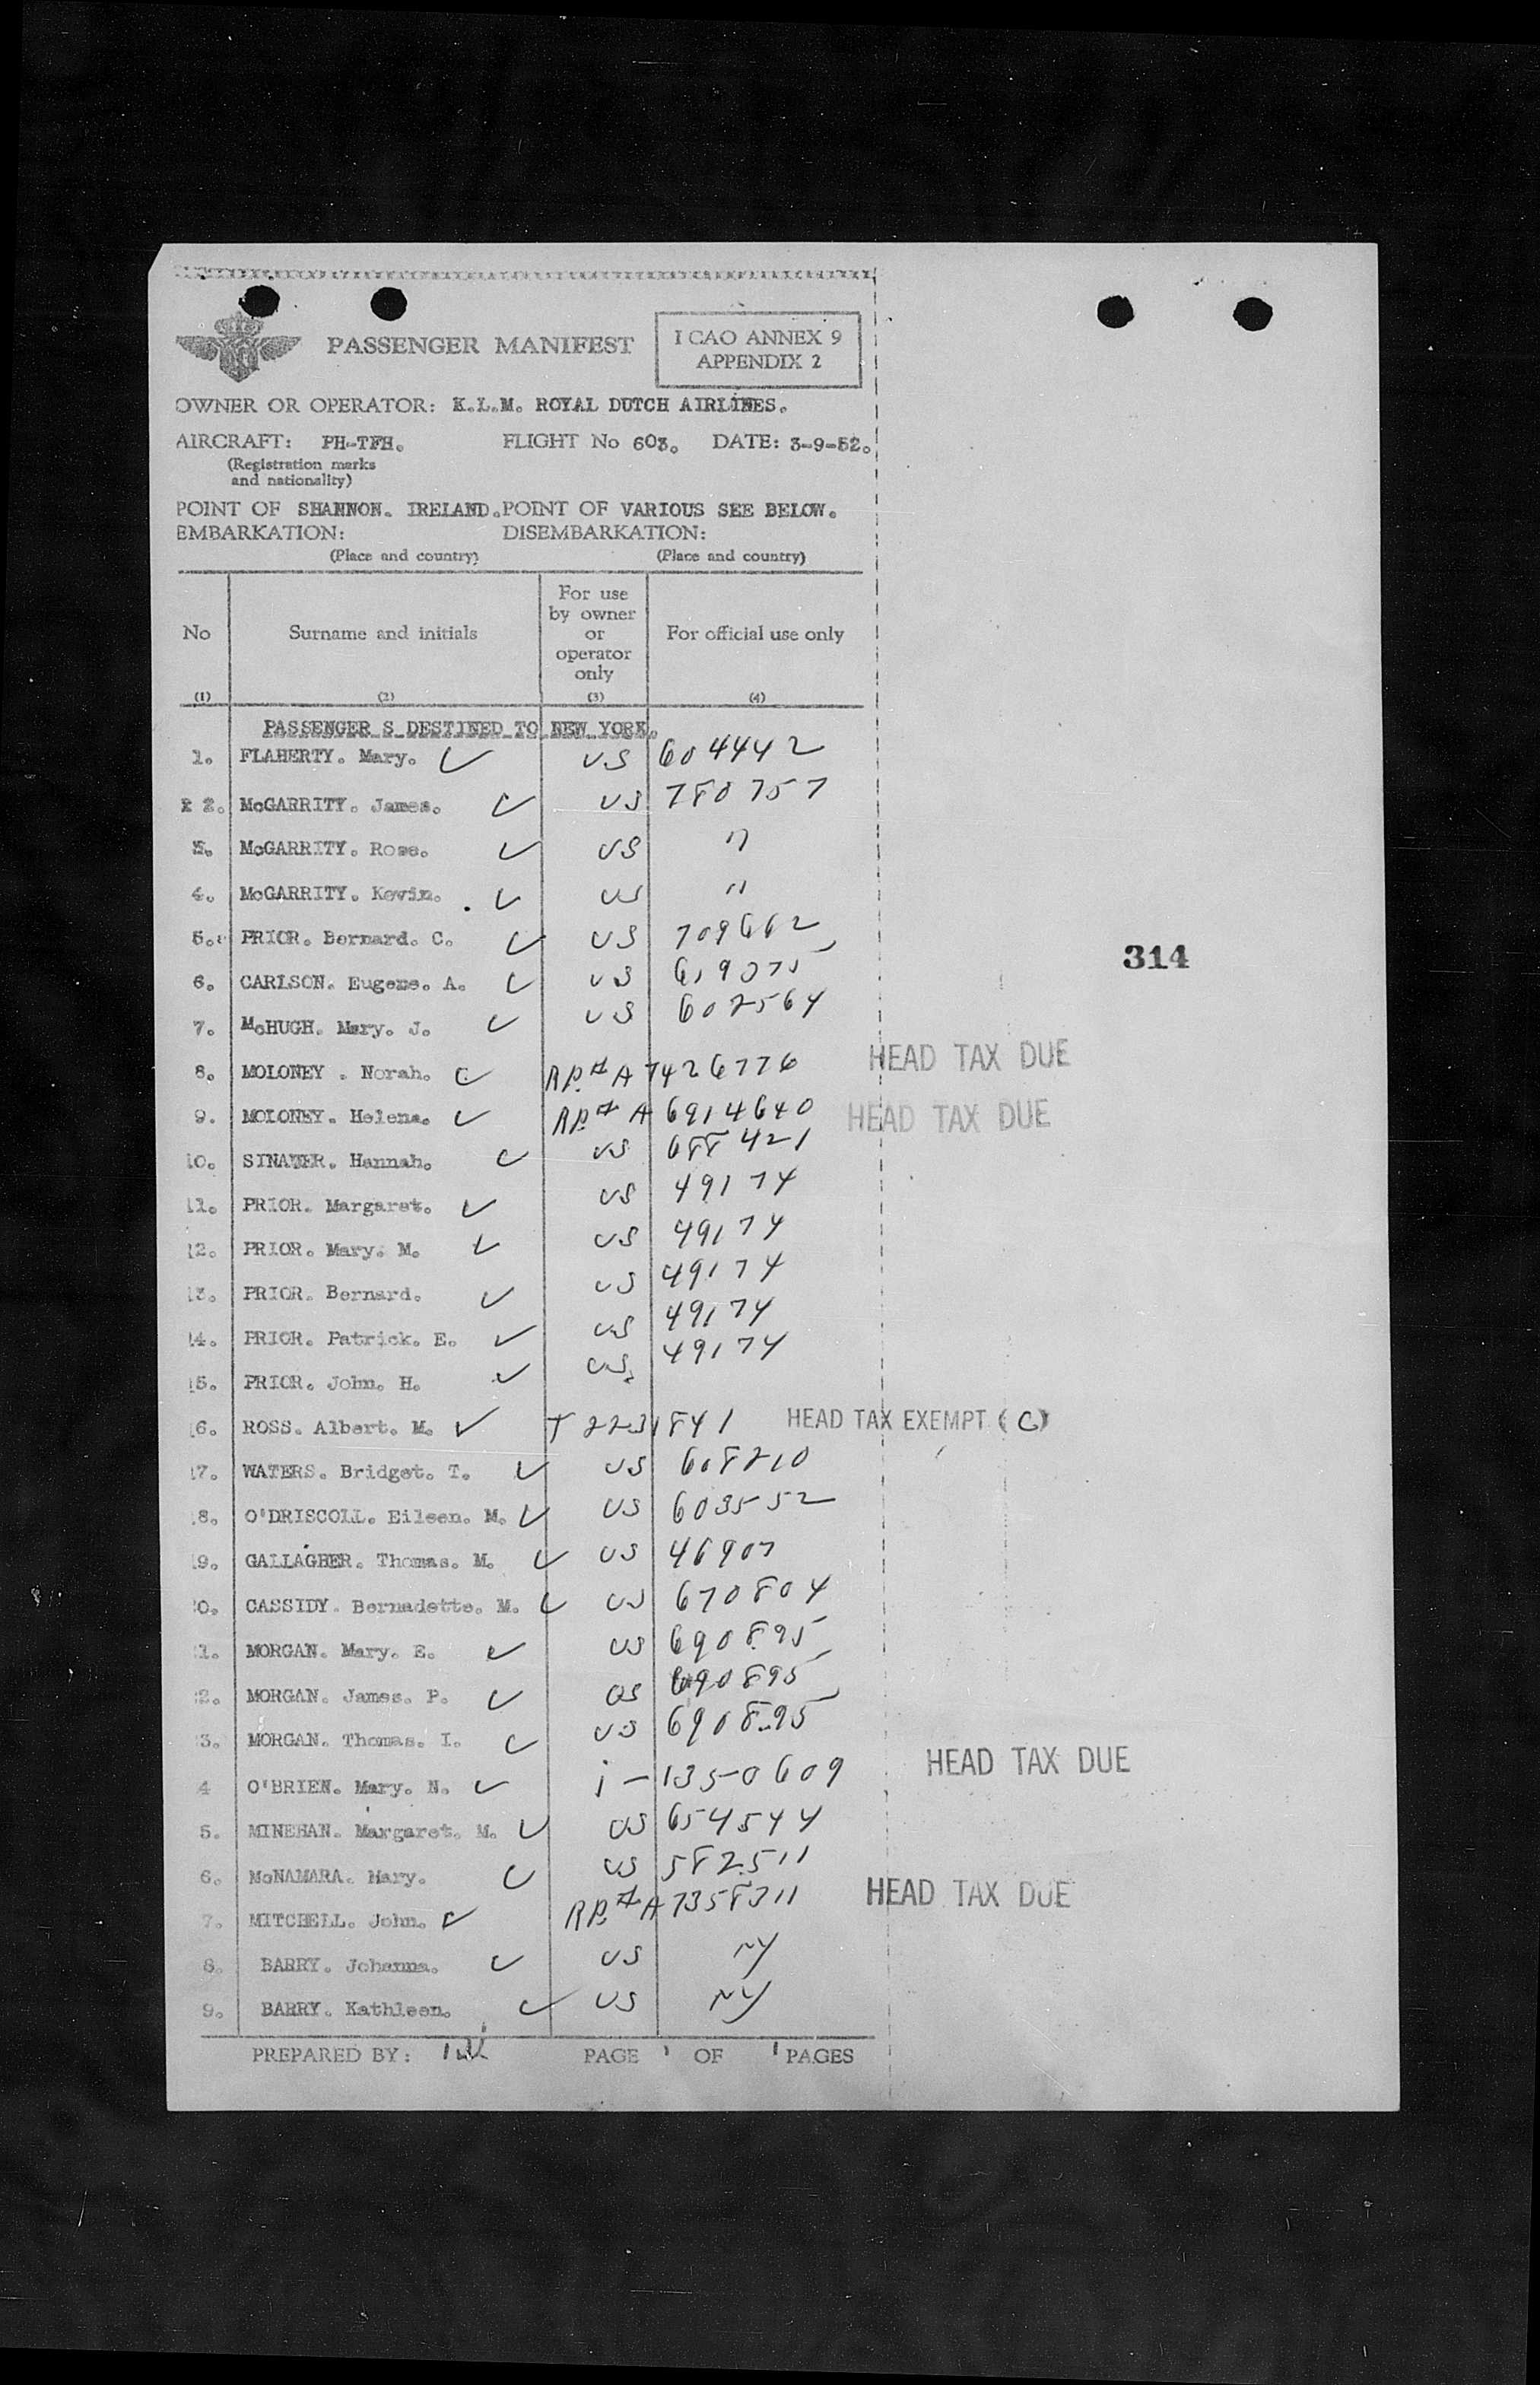 PASSENGER MANIFEST
I CAO ANNEX 9
APPENDIX 2
OWNER OR OPERATOR: K.L.M. ROYAL DUTCH AIRLINES.
AIRCRAFT: PH-TFH. FLIGHT No 603. DATE: 3-9-52.
(Registration marks
and nationality)
POINT OF SHANNON. IRELAND. POINT OF VARIOUS SEE BELOW.
EMBARKATION: DISEMBARKATION:
(Place and country) (Place and country)
No Surname and initials For use by owner or operator only For official use only
(1) (2) (3) (4)
PASSENGER S DESTINED TO NEW YORK.
1. FLAHERTY. Mary. ✓ US 604442
2 2. McGARRITY. James. ✓ US 780757
3. McGARRITY. Rose. ✓ US "
4. McGARRITY. Kevin. ✓ US "
5. PRIOR. Bernard. C. ✓ US 709662
6. CARLSON. Eugene. A. ✓ US 619075
7. McHUGH. Mary. J. ✓ US 602564
8. MOLONEY . Norah. ✓ RP# A7426776 HEAD TAX DUE
9. MOLONEY. Helena. ✓ RP# A6914640 HEAD TAX DUE
10. SINATER. Hannah. ✓ US 688421
11. PRIOR. Margaret. ✓ US 49174
12. PRIOR. Mary. M. ✓ US 49174
13. PRIOR. Bernard. ✓ US 49174
14. PRIOR. Patrick. E. ✓ US 49174
15. PRIOR. John. H. ✓ US 49174
314
16. ROSS. Albert. M. ✓ T 2231841 HEAD TAX EXEMPT (C)
17. WATERS. Bridget. T. ✓ US 608210
8. O'DRISCOLL. Eileen. M. ✓ US 603552
9. GALLAGHER. Thomas. M. ✓ US 46907
0. CASSIDY. Bernadette. M. ✓ US 670804
1. MORGAN. Mary. E. ✓ US 690895
2. MORGAN. James. P. ✓ US 690895
3. MORGAN. Thomas. I. ✓ US 690895
4 O'BRIEN. Mary. N. ✓ i-1350609 HEAD TAX DUE
5. MINEHAN. Margaret. M. ✓ US 654544
6. McNAMARA. Mary. ✓ US 582511
7. MITCHELL. John. ✓ RP# A7358311 HEAD TAX DUE
8. BARRY. Johanna. ✓ US NY
9. BARRY. Kathleen. ✓ US NY
PREPARED BY: PAGE 1 OF 1 PAGES